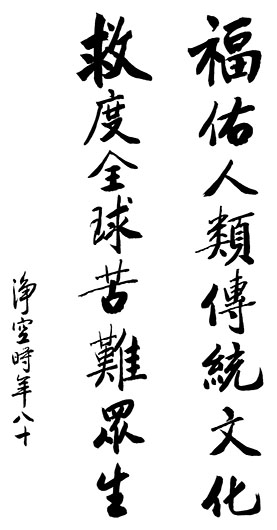 福佑人類傳統文化
救度全球苦難眾生
淨空時年八十